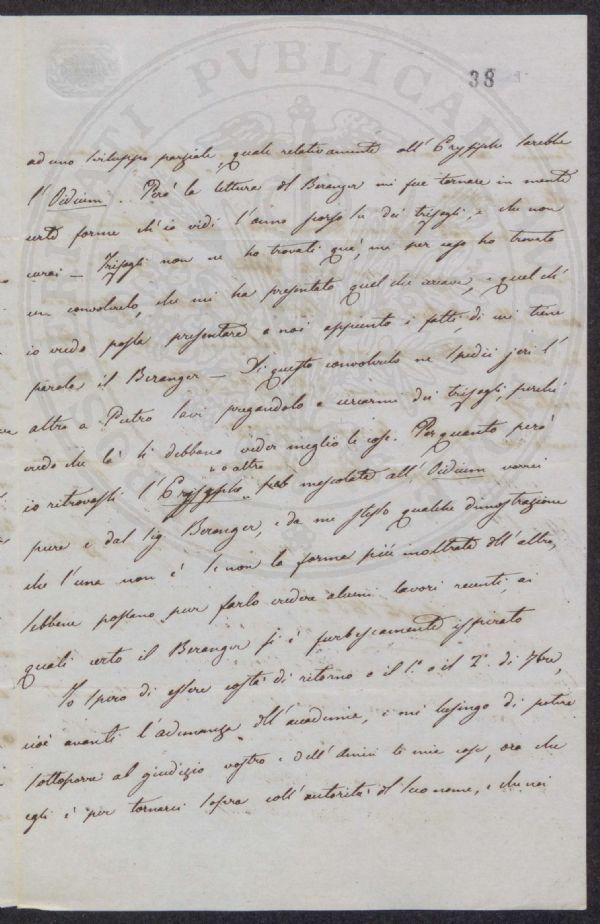 38
ad uno sviluppo parziale, quale relativamente all' Erysiphe sarebbe
l' Oidium. Però la lettura del Beranger mi fece tornare in mente
certe forme ch' io vidi l' anno passo su dei trifogli, e che non
curai — Trifogli non ne ho trovati quà, ma per caso ho trovato
un convolvolo, che mi ha presentato quel che avava, e quel ch'
io credo possa presentare a noi appunto i fatti, di cui tiene
parola il Beranger — Di questo convolvolo ne spedii jeri l'
altro a Pietro Savi pregandolo a cercarmi dei trifogli, perchè
credo che là si debbano veder meglio le cose. Per quanto però
o altro
io ritrovassi l' Erysiphe mescolato all' Oidium vorrei
pure e dal Sig Beranger, e da me stesso qualche dimostrazione
che l' una non è se non la forma più inoltrata dell' altra,
sebbene possano pur farlo credere alcuni lavori recenti, ai
quali certo il Beranger si è furbescamente ispirato
Io spero di essere costà di ritorno o il 1.° o il 2.° di 7bre,
cioè avanti l' adunanza dell' accademia, e mi lusingo di potere
sottoporre al giudizio vostro e dell' Amici le mie cose, ora che
egli è per tornarci sopra coll' autorità del suo nome, e che noi